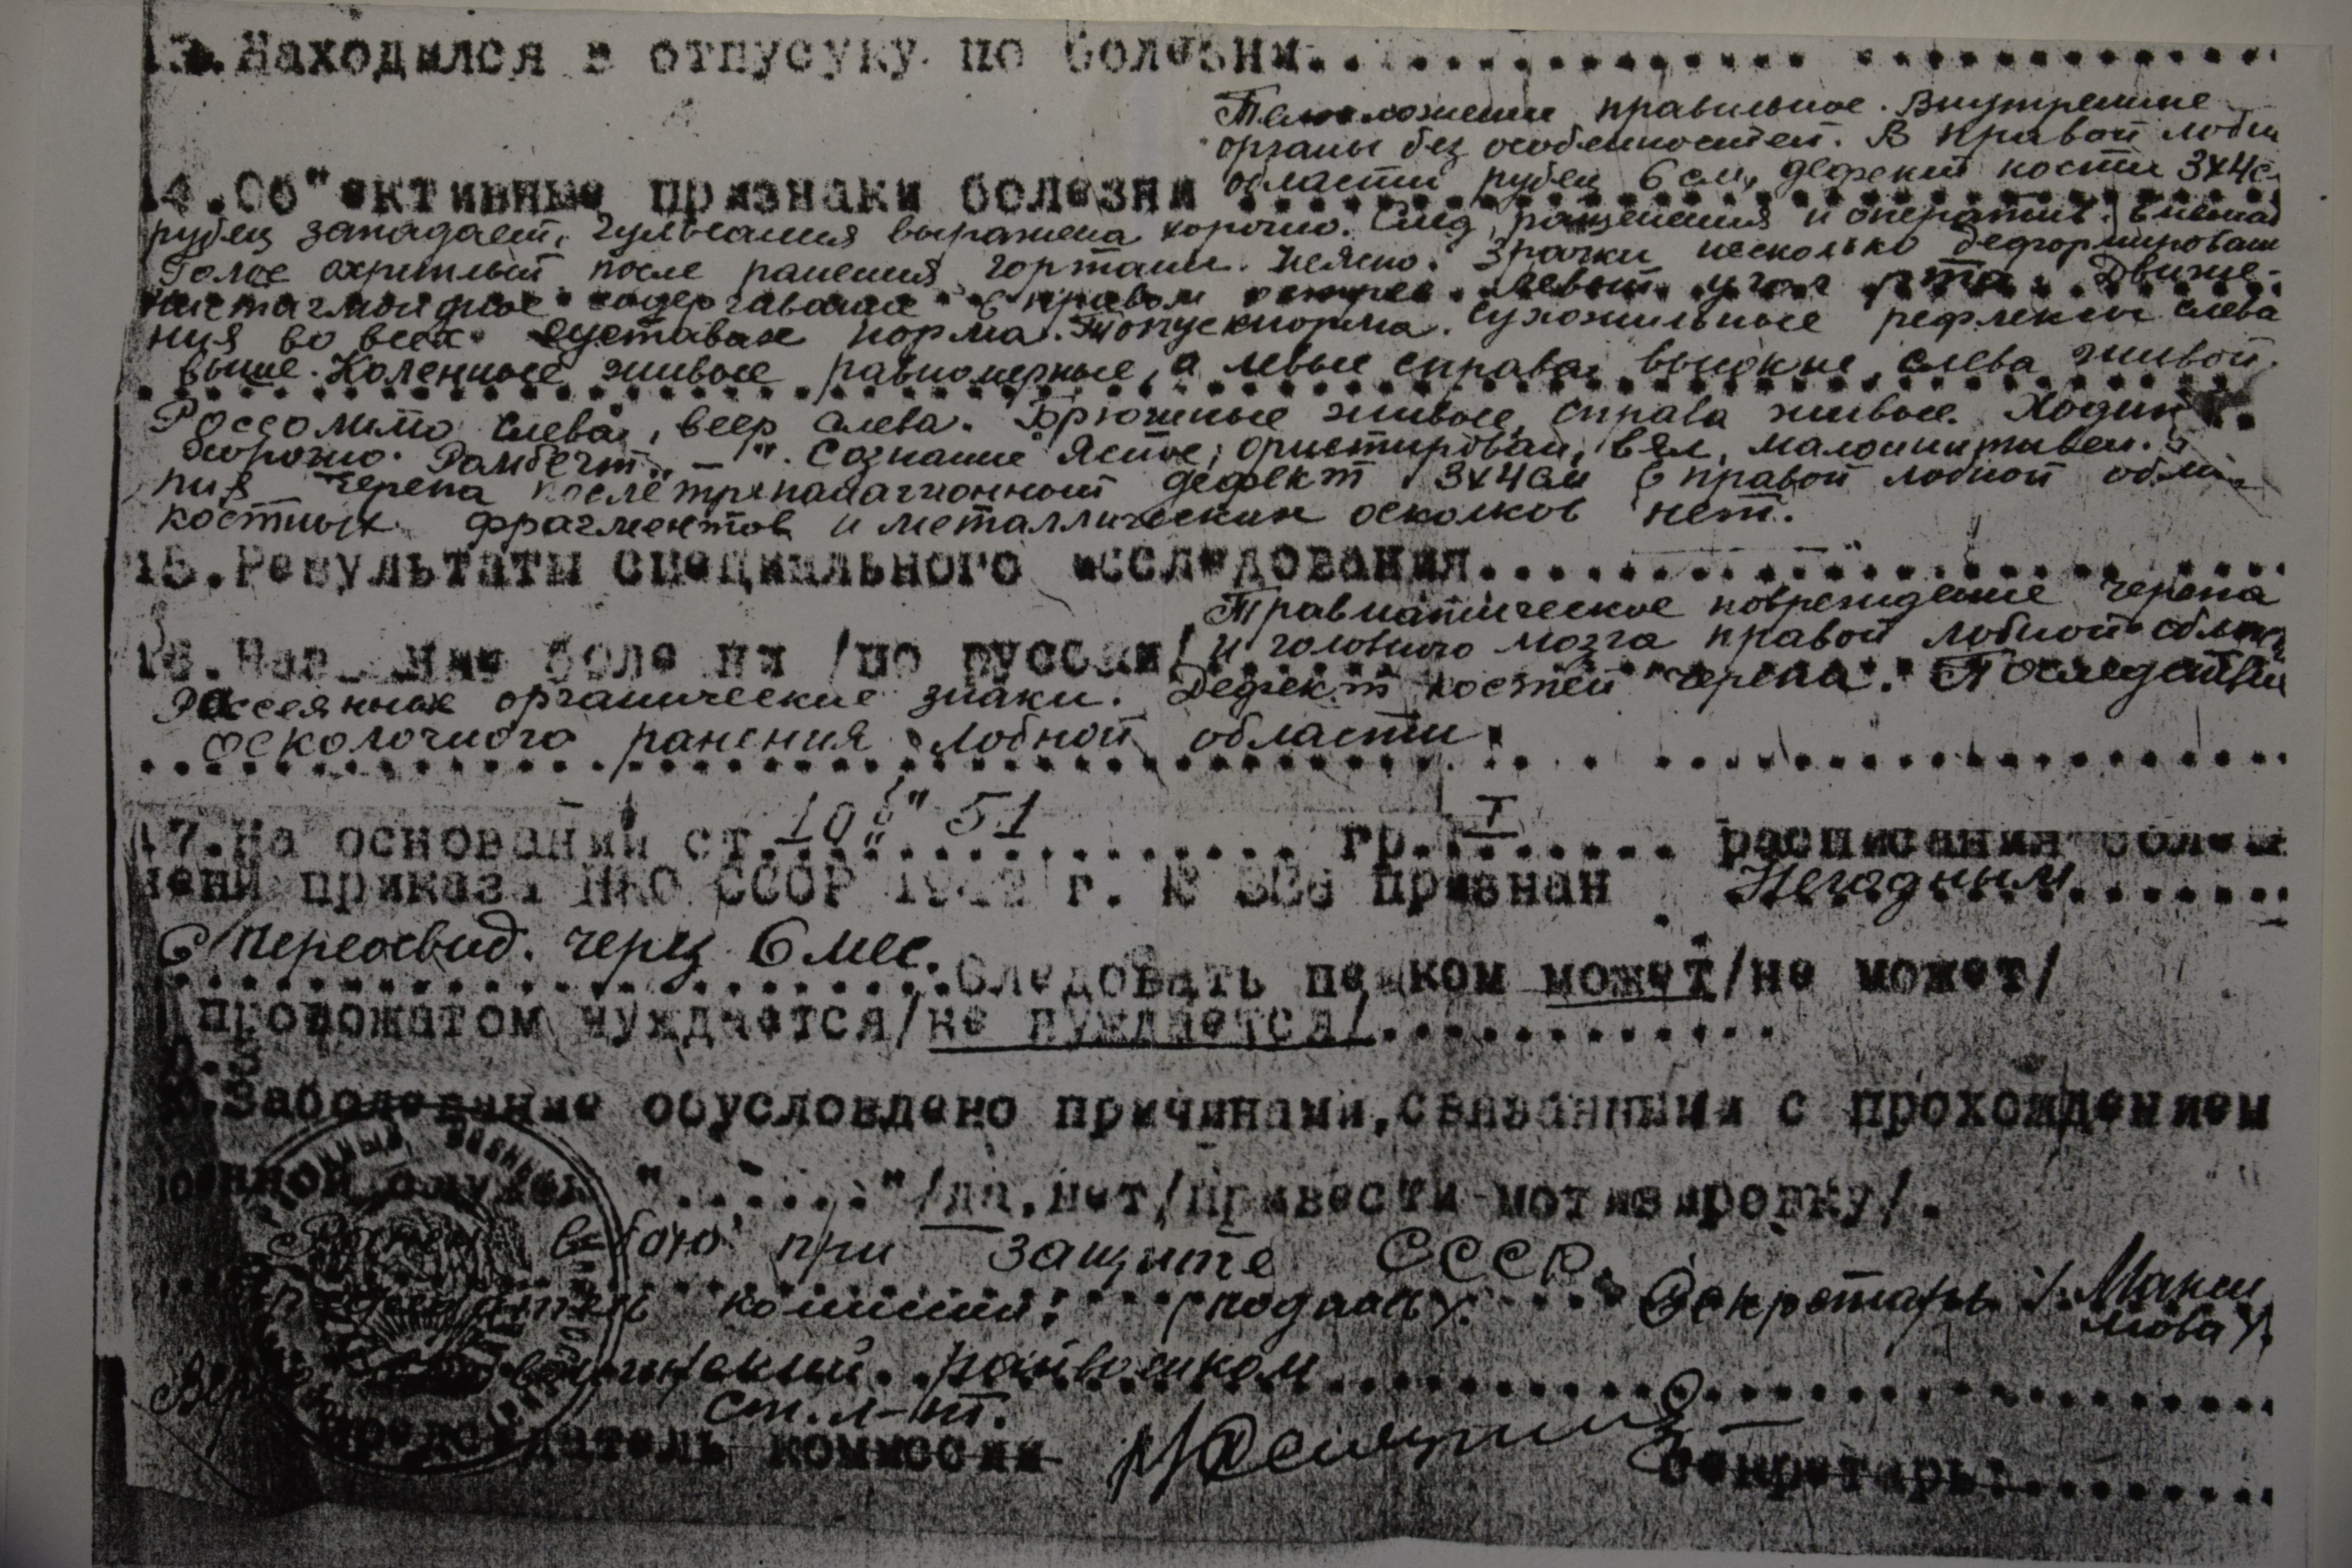 13.Находился в отпусуку по болезни..............................
Телосложение правильное. Внутренние
органы без особенностей. В правой лобн
14.Об"ективные признаки болезни области рубец 6 см, дефект кости 3х4с
рубец западает, пульсация выражена хорошо. След. ранения и операт
Голос охриплый после ранения гортани. Неясно. Зрачки несколько деформирован
нистагмоидное подергивание в правом левый угол рта. Движе-
ния во всех суставах норма. Тонус норма. Сухожильные рефлексы слева
выше. Коленные живые равномерные, а левые справа высокие, слева живой.
Россолимо слева, веер слева. Брюшные живые, справа живые. Ходит
хорошо. Ромберг „ – ". Сознание ясное, ориентирован, вял, малоинициативен.
ния черепа после дефект 3х4см в правой лобной обла
костных фрагментов и металлических осколков нет.
15.Результаты специального исследования....................
Травматическое повреждение черепа
16. /по русски/ и головного мозга правой лобной облас
Рассеянные органические знаки. Дефект костей черепа. Последствия
осколочного ранения лобной области.
17.На основании ст. 10 51 гр. I расписания боле
приказа НКО СССР 1942 г. № 336 признан Негодным
С переосвид. через 6 мес.
Следовать пешком может/не может/
провожатом нуждается/не нуждается/.............
Заболевание обусловлено причинами,связанными с прохождением
военной службы "......."/да,нет/привести мотивировку/.
Ранен в бою при защите СССР.
Председатель комиссии: (подпись). Секретарь /Макси
мова/.
райвоенком
ст. л-нт.
Председатель комиссии
Секретарь:.........